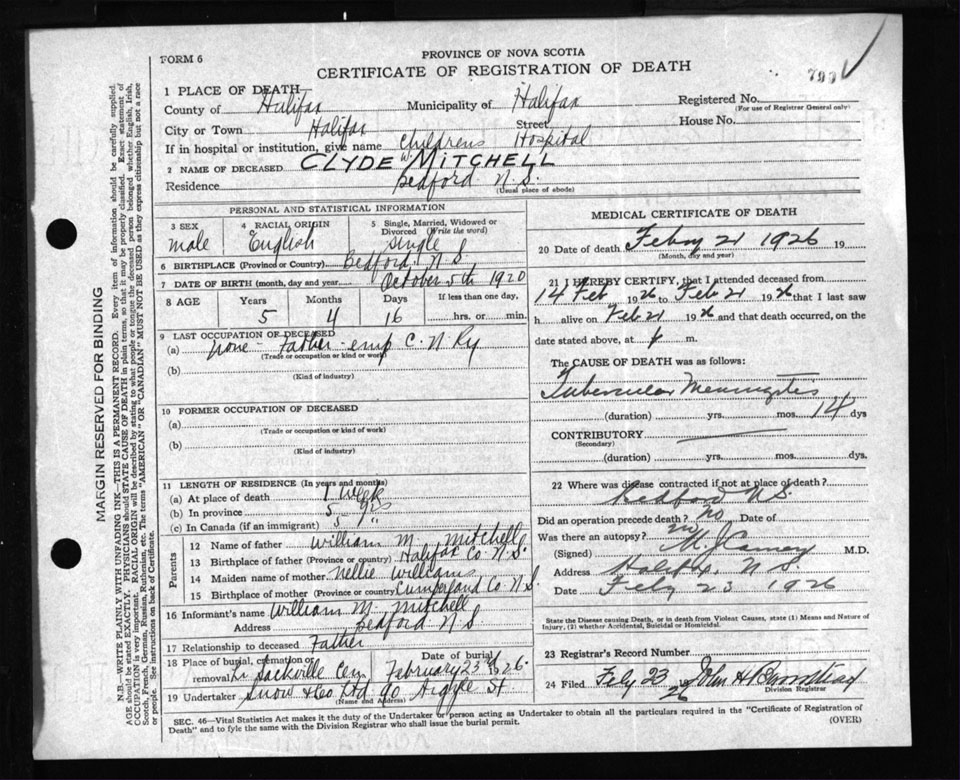 FORM 6
PROVINCE OF NOVA SCOTIA
CERTIFICATE OF REGISTRATION OF DEATH
1 PLACE OF DEATH
County of Halifax Municipality of Halifax Registered No.
(For use of Registrar General only)
City or Town Halifax Street House No.
If in hospital or institution, give name Childrens Hospital
2 NAME OF DECEASED CLYDE W MITCHELL
Residence Bedford N.S.
(Usual place of abode)
MARGIN RESERVED FOR BINDING
N.B.—WRITE PLAINLY WITH UNFADING INK—THIS IS A PERMANENT RECORD. Every item of information should be carefully supplied.
AGE should be stated EXACTLY. PHYSICIANS should STATE CAUSE OF DEATH in plain terms, so that it may be properly classified. Exact statement of
OCCUPATION is very important. RACIAL ORIGIN will be described by stating to what people or tongue the deceased person belonged whether English, Irish,
Scotch, French, German, Russian, Ruthenian, etc. The terms "AMERICAN" or "CANADIAN" MUST NOT BE USED as they express citizenship but not a race
or people. See instructions on back of Certificate.
PERSONAL AND STATISTICAL INFORMATION
3 SEX
male
4 RACIAL ORIGIN
English
5 Single, Married, Widowed or
Divorced (Write the word)
single
6 BIRTHPLACE (Province or Country) Bedford N S
7 DATE OF BIRTH (month, day and year) October 5th 1920
8 AGE Years Months Days If less than one day,
5 4 16 hrs. or min.
9 LAST OCCUPATION OF DECEASED
(a) none - Father - emp C. N Ry
(Trade or occupation or kind or work)
(b)
(Kind of industry)
10 FORMER OCCUPATION OF DECEASED
(a)
(Trade or occupation or kind of work)
(b)
(Kind of industry)
11 LENGTH OF RESIDENCE (In years and months)
(a) At place of death 1 week
(b) In province 5 yrs
(c) In Canada (if an immigrant) 5 "
Parents
12 Name of father William M. Mitchell
13 Birthplace of father (Province or country) Halifax Co N.S.
14 Maiden name of mother Nellie Williams
15 Birthplace of mother (Province or country) Cumberland Co N S.
16 Informant's name William M. Mitchell
Address Bedford N S
17 Relationship to deceased Father
18 Place of burial, cremation or removal Lr Sackville Cem Date of burial February 23rd 1926.
19 Undertaker Snow & Co Ltd 90 Argyle St
(Name and Address)
MEDICAL CERTIFICATE OF DEATH
20 Date of death Febry 21 1926 19
(Month, day and year)
21 I HEREBY CERTIFY, that I attended deceased from
14 Feb 1926 to Feb 21 1926 that I last saw
h alive on Feb 21 1926 and that death occurred, on the
date stated above, at m.
The CAUSE OF DEATH was as follows:
Tubercular Meningitis
(duration) yrs. mos. 14 dys
CONTRIBUTORY
(Secondary)
(duration) yrs. mos. dys.
22 Where was disease contracted if not at place of death?
Bedford N.S.
Did an operation precede death? no Date of
Was there an autopsy? no
(Signed) M.D.
Address Halifax, N. S.
Date Feby 23 1926
State the Disease causing Death, or in death from Violent Causes, state (1) Means and Nature of
Injury, (2) whether Accidental, Suicidal or Homicidal.
23 Registrar's Record Number
24 Filed Feby 23 1926 John H
Division Registrar
SEC. 46—Vital Statistics Act makes it the duty of the Undertaker or person acting as Undertaker to obtain all the particulars required in the "Certificate of Registration of
Death" and to fyle the same with the Division Registrar who shall issue the burial permit. (OVER)